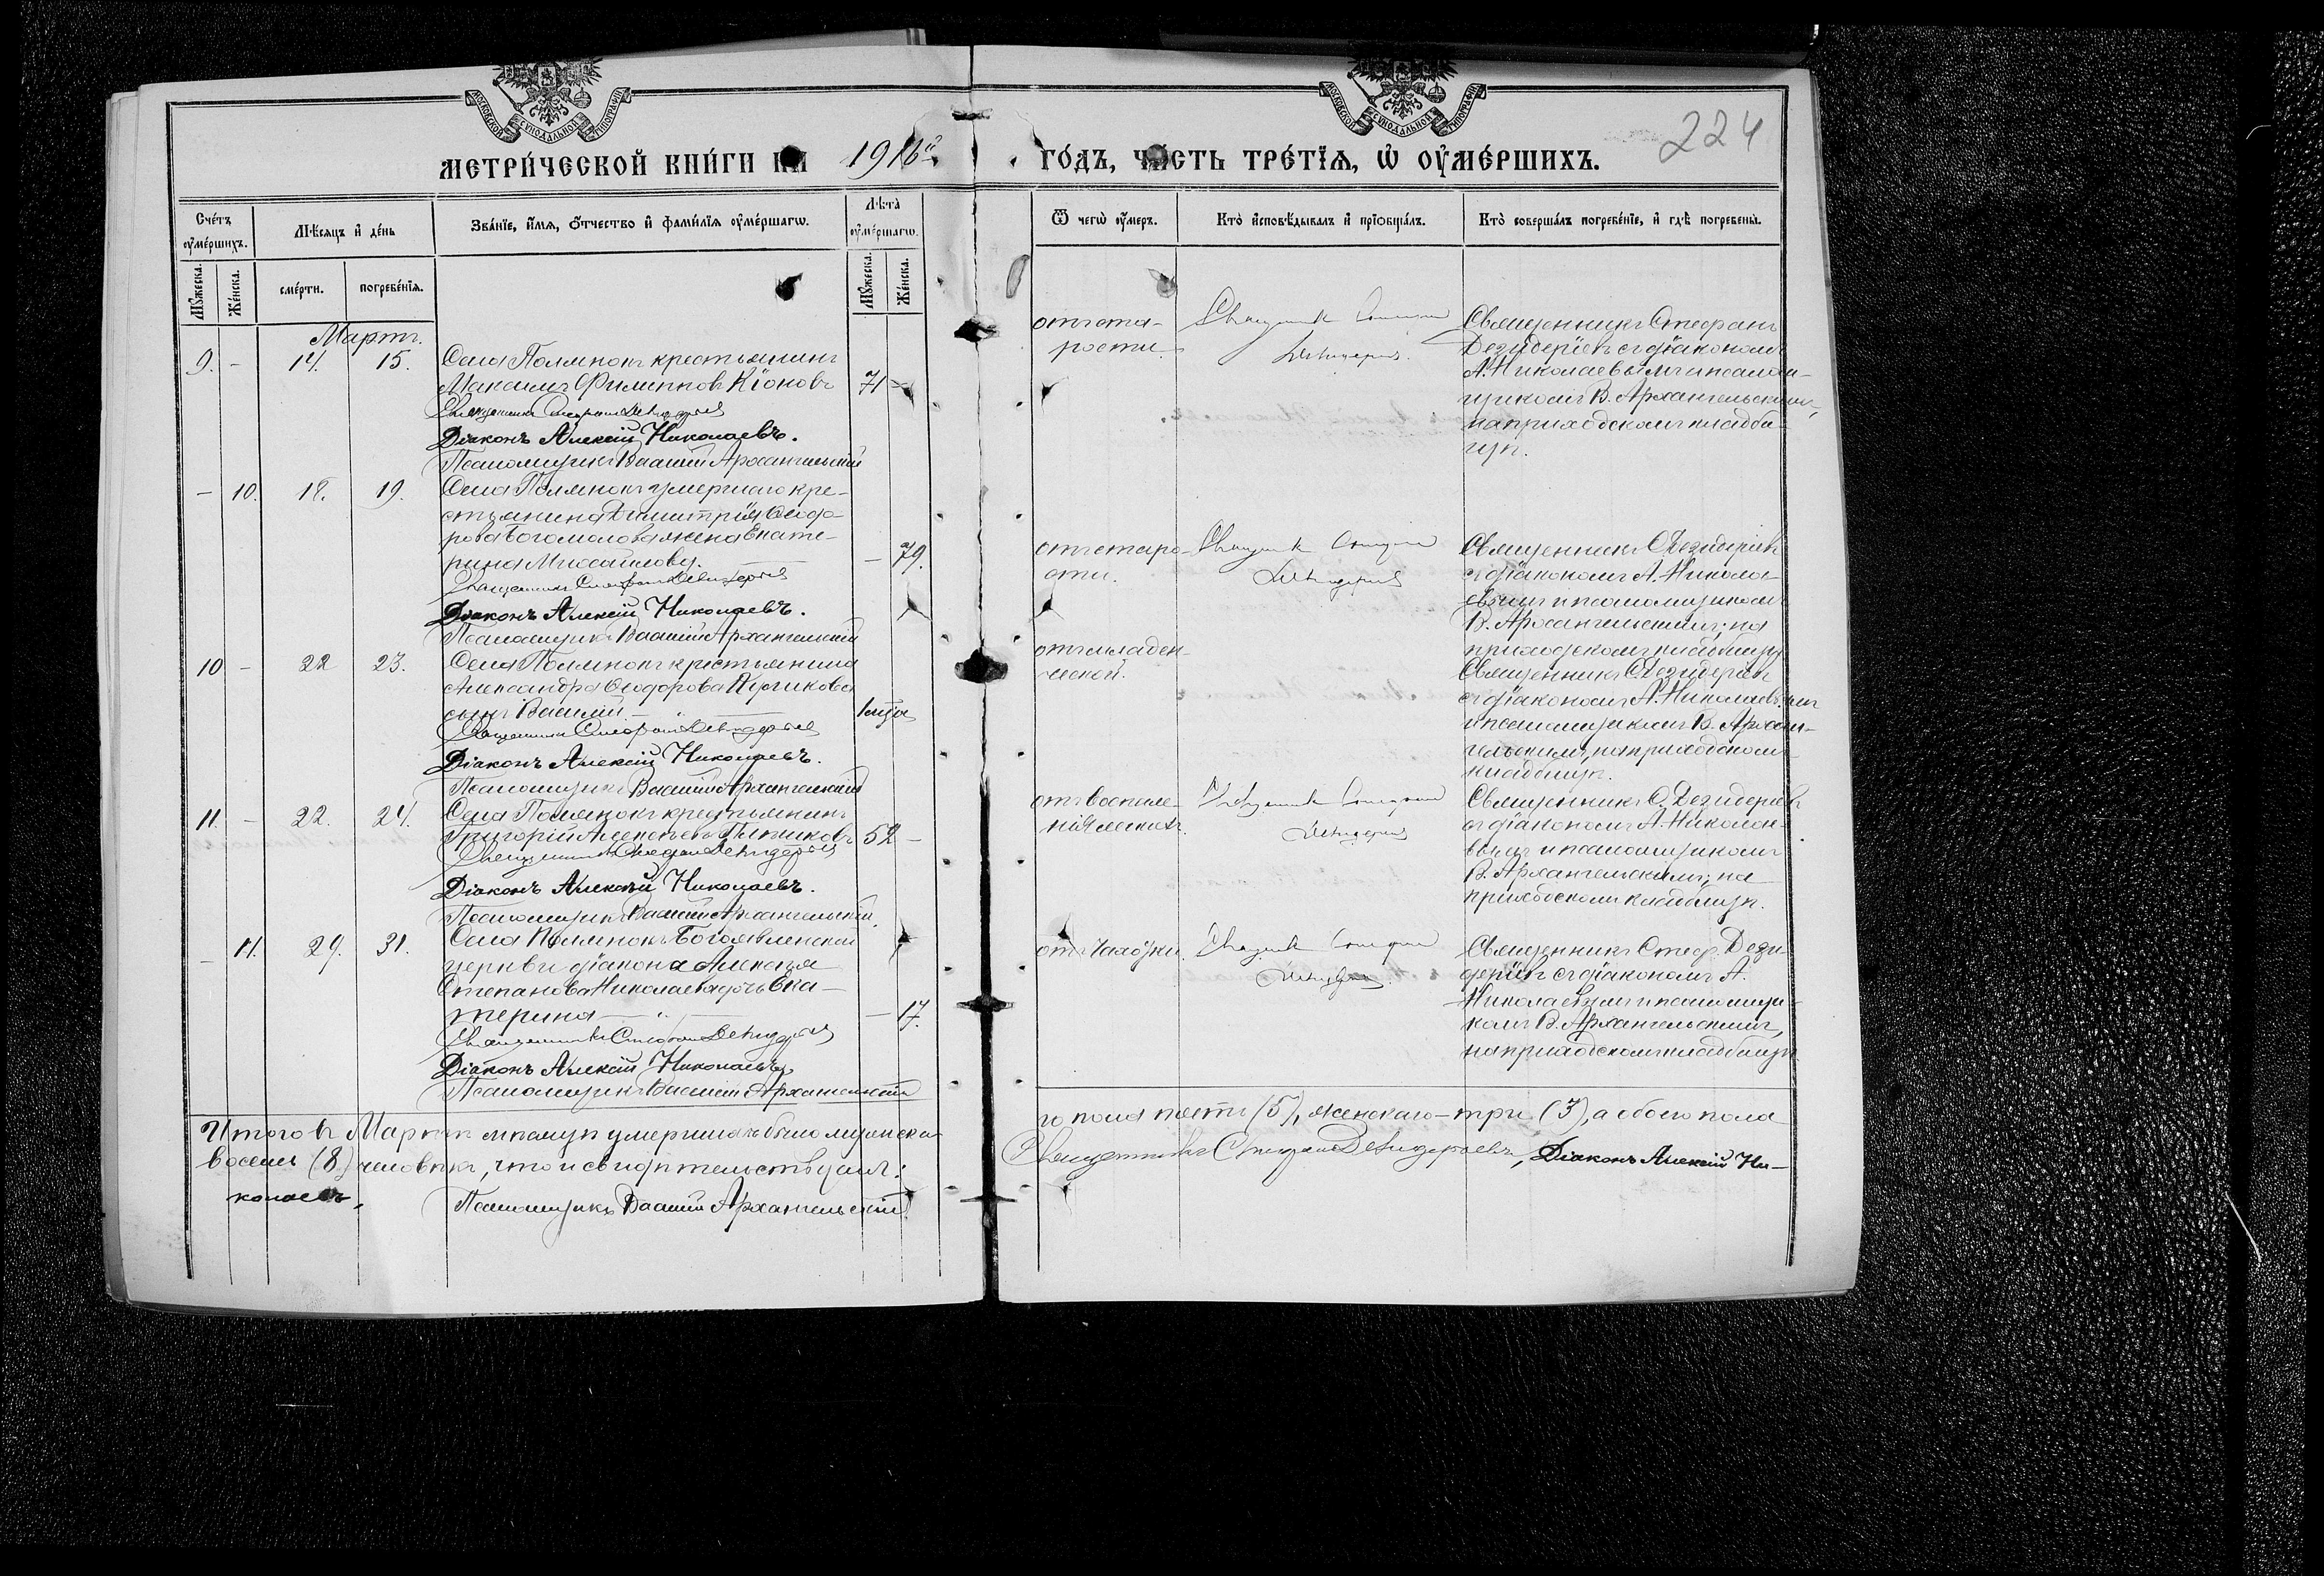 МОСКОВСКОЙ СУНОДАЛЬНОЙ ТИПОГРАФІИ
МОСКОВСКОЙ СУНОДАЛЬНОЙ ТИПОГРАФІИ
МЕТРИ́ЧЕСКОЙ КНИ́ГИ НА 1916й ГО́ДЪ, ЧА́СТЬ ТРЕ́ТЇѦ, Ѡ҆ ОУ҆МЕ́РШИХЪ.
224
Сче́тъ оу҆ме́ршихъ.
Мѣ́сѧцъ и҆ де́нь
Зва́нїе, и҆́мѧ, ѻ҆́тчество и҆ фами́лїѧ оу҆ме́ршагѡ.
Лѣ́та̀ оу҆ме́ршагѡ.
Мꙋ́жеска.
Же́нска.
сме́рти.
погребе́нїѧ.
Мꙋ́жеска.
Же́нска.
Ѿ чегѡ̀ оу҆́меръ.
Кто̀ и҆сповѣ́дывалъ и҆ прїѻбща́лъ.
Кто̀ соверша́лъ погребе́нїе, и҆ гдѣ̀ погребены̀.
Мартъ.
9. - 14. 15. Села Полянокъ крестьянинъ
Максимъ Филипповъ Кіоновъ 71 -
Священникъ Стефанъ Дезидеріев
Діаконъ Алексій Николаевъ.
Псаломщикъ Василій Архангельскій
отъ ста-
рости.
Священник Стефан
Дезидеріев.
Священникъ Стефанъ
Дезидеріевъ съ діакономъ
А. Николаевымъ и псалом-
щикомъ В. Архангельскимъ,
на приходскомъ кладби-
щѣ.
- 10. 18. 19. Села Полянокъ умершаго кре-
стьянина Димитрія Ѳеодо-
рова Богомолова жена Екате-
рина Михайлова. - 79.
Священникъ Стефан Дезидеріев
Діаконъ Алексій Николаевъ.
Псаломщикъ Василій Архангельскій
отъ старо-
сти.
Священник Стефан
Дезидеріев
Священникъ С. Дезидеріевъ
съ діакономъ А. Никола-
евымъ и псаломщикомъ
В. Архангельскимъ, на
приходскомъ кладбищѣ
10 - 22 23. Села Полянокъ крестьянина
Александра Ѳеодорова
сынъ Василій
Священникъ Стефан Дезидеріев
Діаконъ Алексій Николаевъ.
Псаломщикъ Василій Архангельскій
отъ младен-
ческой.
Священникъ С. Дезидеріевъ
съ діакономъ А. Николаевымъ
и псаломщикомъ В. Архан-
гельскимъ, на приходскомъ
кладбищѣ.
11. - 22. 24. Села Полянокъ крестьянинъ
Григорій Алексѣевъ 52 -
Священникъ Стефан Дезидеріев
Діаконъ Алексій Николаевъ.
Псаломщикъ Василій Архангельскій.
отъ воспале-
нія легкихъ.
Священник Стефан
Дезидеріев
Священникъ С. Дезидеріевъ
съ діакономъ А. Николае-
вымъ и псаломщикомъ
В. Архангельскимъ, на
приходскомъ кладбищѣ.
- 11. 29. 31. Села Полянокъ Богоявленской
церкви діакона Алексѣя
Степанова Николаева дочь Ека-
терина - 17.
Священникъ Стефан Дезидеріев
Діаконъ Алексій Николаевъ.
Псаломщикъ Василій Архангельскій
отъ чахотки.
Священник Стефан
Дезидеріев.
Священникъ Стеф. Дези-
деріевъ съ діакономъ А.
Николаевымъ и псаломщи-
комъ В. Архангельскимъ,
на приходскомъ кладбищѣ
Итого въ Мартѣ мѣсяцѣ умершихъ было мужска-
го пола пять (5), женскаго - три (3), а обоего пола
восемь (8) человѣкъ, что и свидѣтельствуемъ:
Священникъ Стефанъ Дезидеріевъ, Діаконъ Алексій Ни-
колаевъ, Псаломщикъ Василій Архангельскій.